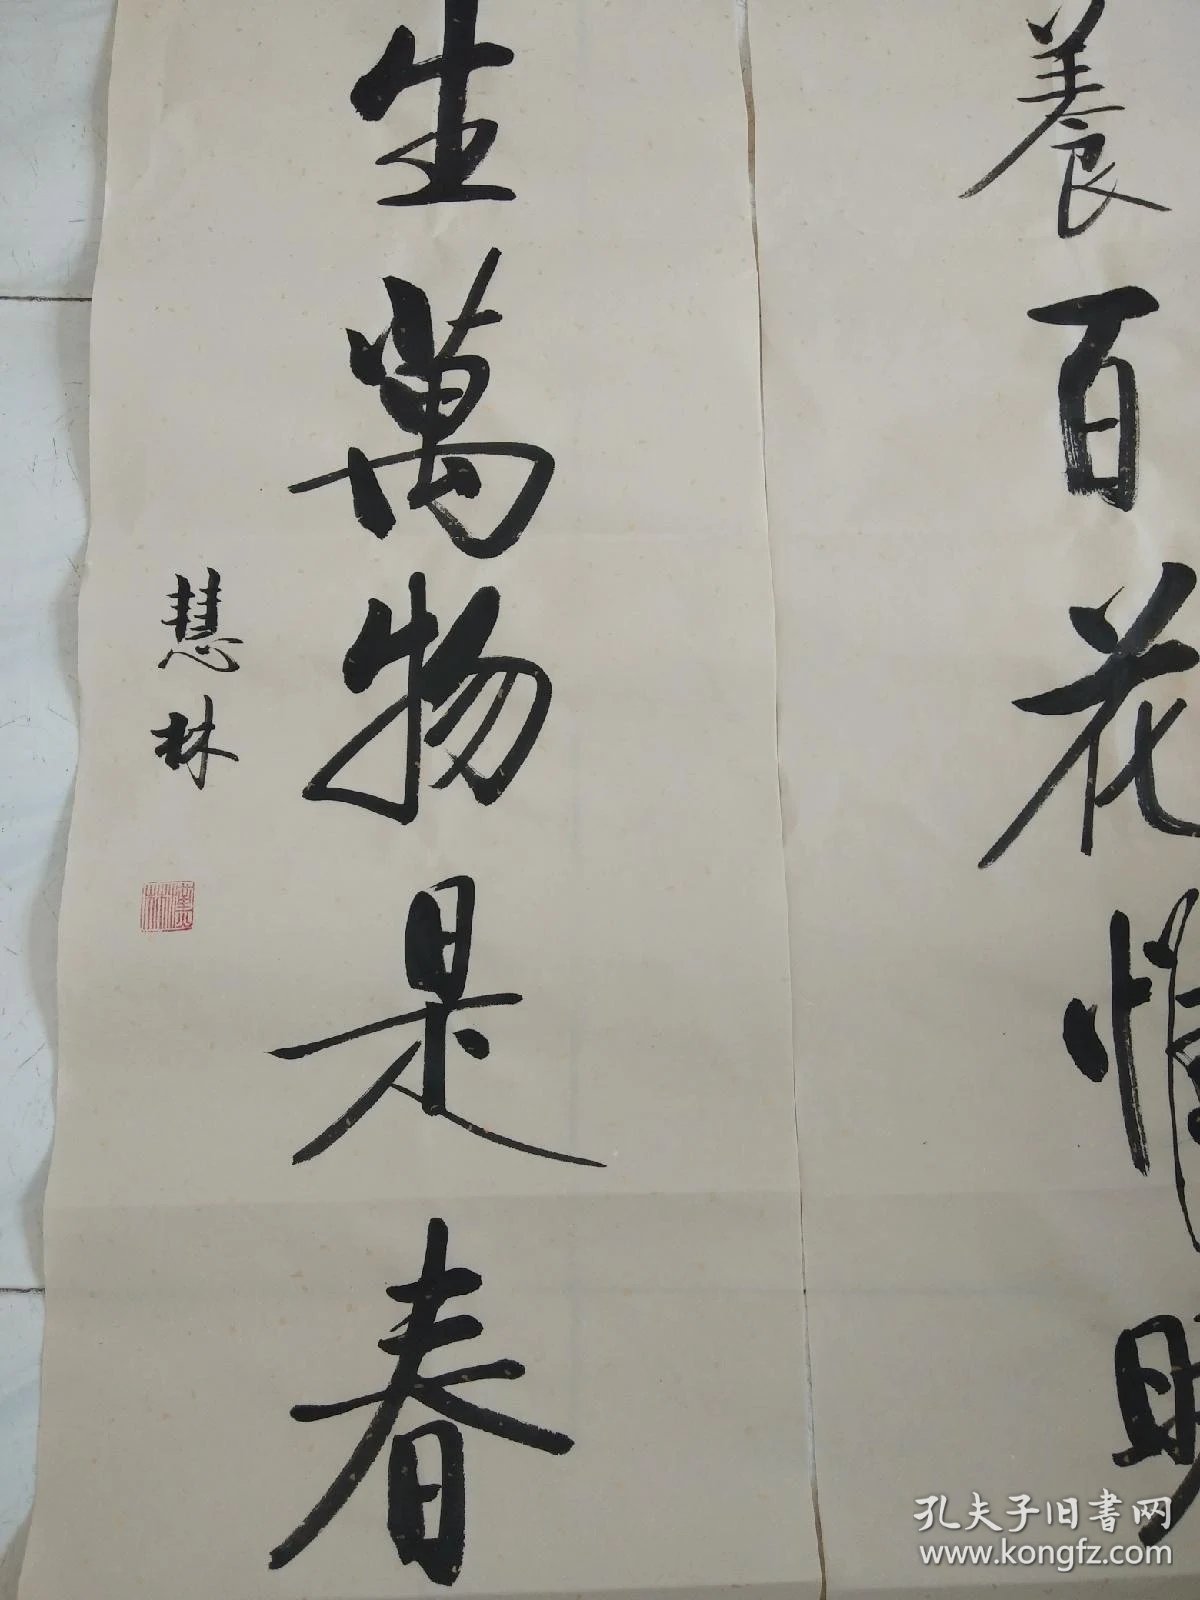 養百花
生萬物是春
慧林
孔夫子旧書网
www.kongfz.com